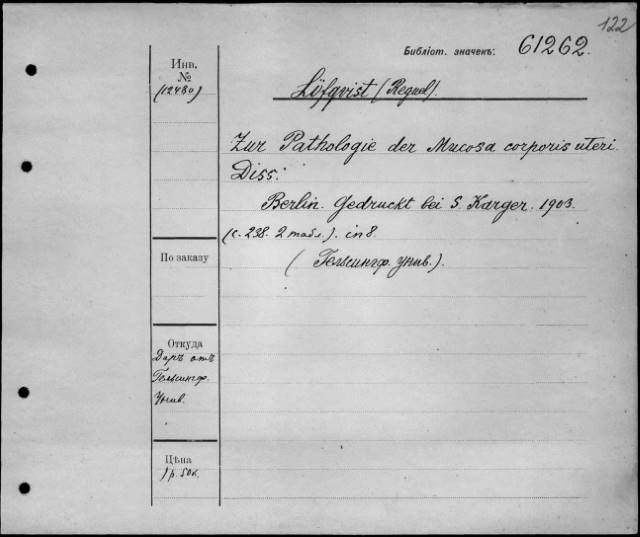 122
Библіот. значекъ: 61262.
Инв.
№
(12480)
Löfqvist (Reguel).
Zur Pathologie der Mucosa corporis uteri.
Diss:
Berlin. Gedruckt bei S. Karger. 1903.
(с. 238. 2 табл.). in 8.
(Гельсингф. унив.).
По заказу
Откуда
Даръ отъ
Гельсингф.
Унив.
Цѣна
1 р. 50 к.